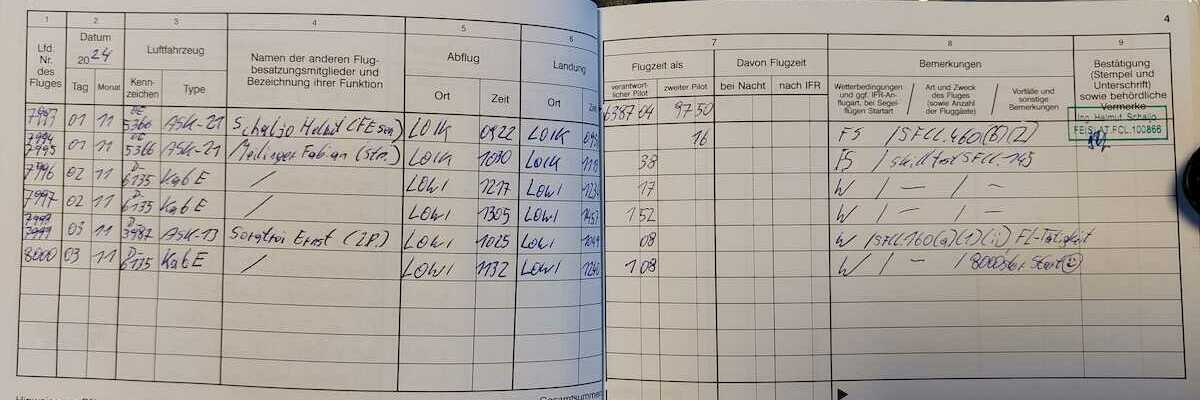 1 2 3 4 5 6 7 8 9 4
Lfd. Nr. des Fluges
Datum 2024 Tag Monat
Luftfahrzeug Kennzeichen Type
Namen der anderen Flug-
besatzungsmitglieder und
Bezeichnung ihrer Funktion
Abflug Ort Zeit
Landung Ort
Flugzeit als verantwort-
licher Pilot zweiter Pilot
Davon Flugzeit bei Nacht nach IFR
Bemerkungen
Wetterbedingungen
und ggf. IFR-An-
flugart, bei Segel-
flügen Startart
Art und Zweck
des Fluges
(sowie Anzahl
der Fluggäste)
Vorfälle und
sonstige
Bemerkungen
Bestätigung
(Stempel und
Unterschrift)
sowie behördliche
Vermerke
6387 04 97 50
01 11 5366 ASK-21 LOIK 0922 LOIK 16 FS / SFCL.160(b)(2)
Ing. Helmut
FE(S) AT.FCL.100866
7995 01 11 5366 ASK-21 Fabian LOIK LOIK 38 FS / Skilltest SFCL.145
7996 02 11 6135 Ka6E / LOWI 1217 LOWI 17 W / — / —
7997 02 11 6135 Ka6E / LOWI 1305 LOWI 1 52 W / — / —
03 11 3987 ASK-13 Ernst (2P.) LOWI 1025 LOWI 08 W / SFCL.160(a)(1)(ii) FL-Tätigkeit
8000 03 11 6135 Ka6E / LOWI 1132 LOWI 1 08 W / — / 8000ster Start